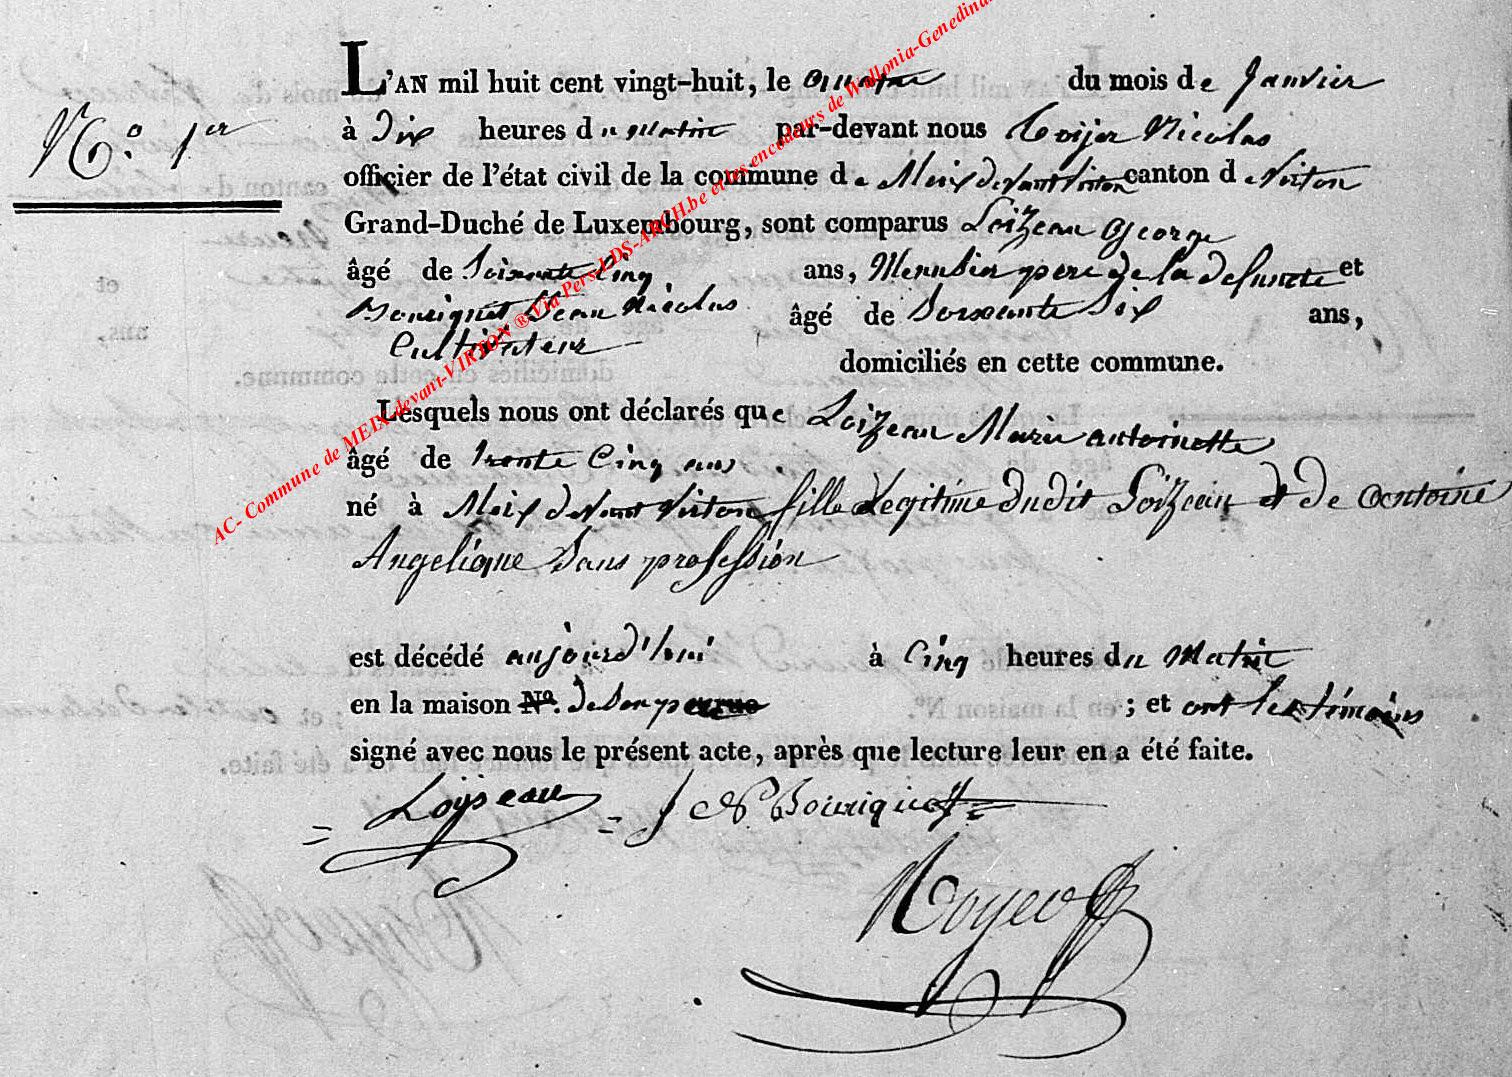 N° 1er
L'AN mil huit cent vingt-huit, le quatre du mois de Janvier
à Dix heures du matin par-devant nous Nicolas
officier de l'état civil de la commune de Meix devant Virton canton de Virton
Grand-Duché de Luxembourg, sont comparus Loizeau George
âgé de Soixante Cinq ans, Menusier père de la defuncte et
Bouriquet Jean Nicolas âgé de Soixante Six ans,
Cultivateur
domiciliés en cette commune.
Lesquels nous ont déclarés que Loizeau Marie antoinette
âgé de trente Cinq ans
né à Meix devant Virton fille Legitime dudit Loizeau et de antoine
Angelique Sans profession
est décédé aujourd'hui à Cinq heures du Matin
en la maison N°. de Son pere ; et ont les témoins
signé avec nous le présent acte, après que lecture leur en a été faite.
Loyseau J N Bouriquet
AC- Commune de MEIX-devant-VIRTON ® Via Pers-LDS-ARCH.be et les encodeurs de Wallonia-Genedinal